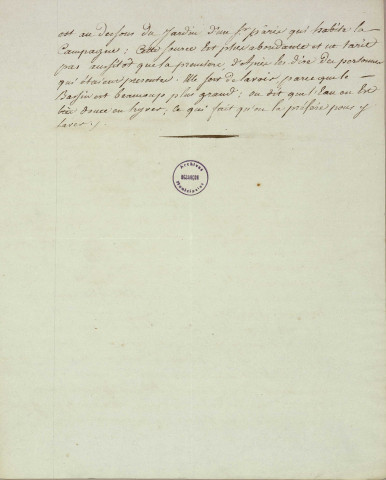 est au dessous du Jardin d'un sr páris qui habite la
Campagne; Cette source Est plus abondante et ne tarit
pas aussitôt que la premiere d'après les dire des personnes
qui étaient presentes. Elle sert de lavoir parce que le
Bassin est beaucoup plus grand; on dit que l'eau en Est
très douce en hyver; Ce qui fait qu'on la préfère pour y
laver./.
Archives
BESANÇON
Municipales